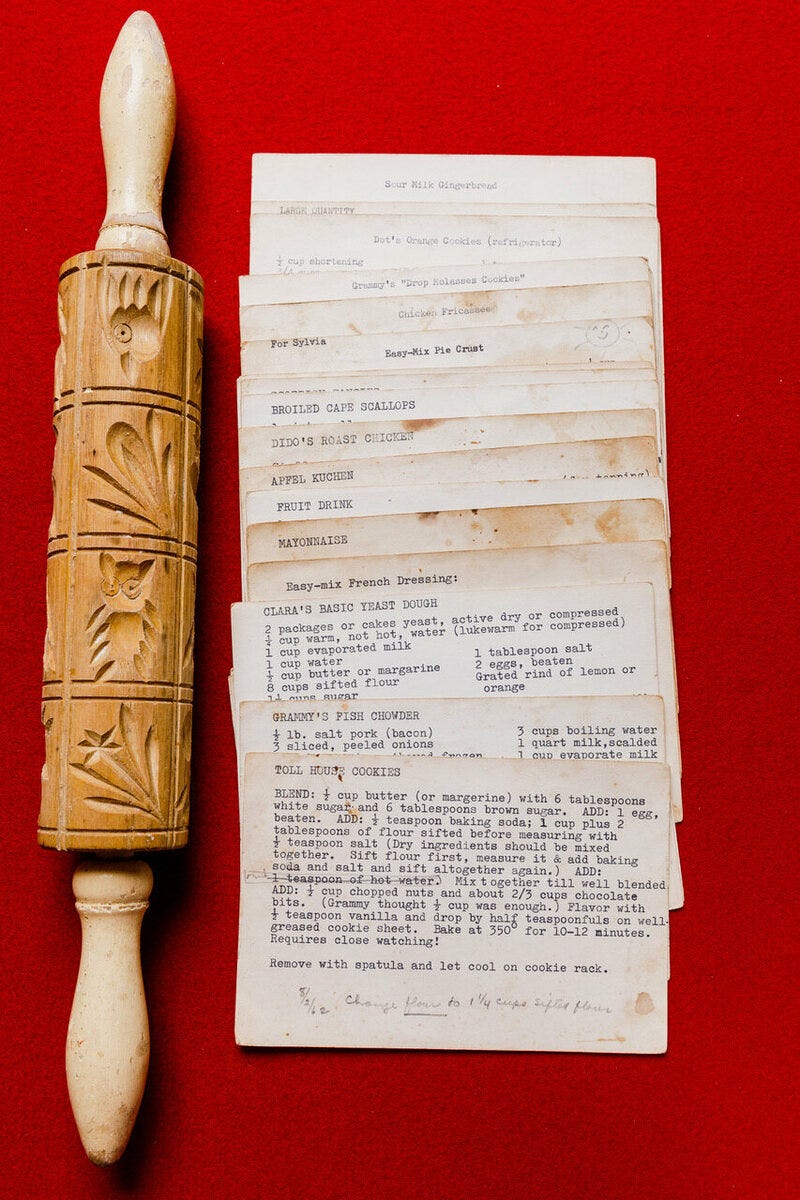 Sour Milk Gingerbread
LARGE QUANTITY
Dot's Orange Cookies (refrigerator)
½ cup shortening
Grammy's "Drop Molasses Cookies"
Chicken Fricassee
For Sylvia
Easy-Mix Pie Crust
BROILED CAPE SCALLOPS
DIDO'S ROAST CHICKEN
APFEL KUCHEN
FRUIT DRINK
MAYONNAISE
Easy-mix French Dressing:
CLARA'S BASIC YEAST DOUGH
2 packages or cakes yeast, active dry or compressed
¼ cup warm, not hot, water (lukewarm for compressed)
1 cup evaporated milk
1 cup water
½ cup butter or margarine
8 cups sifted flour
1½ cups sugar
1 tablespoon salt
2 eggs, beaten
Grated rind of lemon or
orange
GRAMMY'S FISH CHOWDER
½ lb. salt pork (bacon)
3 sliced, peeled onions
3 cups boiling water
1 quart milk,scalded
1 cup evaporate milk
TOLL HOUSE COOKIES
BLEND: ½ cup butter (or margerine) with 6 tablespoons
white sugar and 6 tablespoons brown sugar. ADD: 1 egg,
beaten. ADD: ½ teaspoon baking soda; 1 cup plus 2
tablespoons of flour sifted before measuring with
½ teaspoon salt (Dry ingredients should be mixed
together. Sift flour first, measure it & add baking
soda and salt and sift altogether again.) ADD:
1 teaspoon of hot water. Mix together till well blended.
ADD: ½ cup chopped nuts and about 2/3 cups chocolate
bits. (Grammy thought ½ cup was enough.) Flavor with
½ teaspoon vanilla and drop by half teaspoonfuls on well-
greased cookie sheet. Bake at 350° for 10-12 minutes.
Requires close watching!
Remove with spatula and let cool on cookie rack.
8/2/62 Change flour to 1¼ cups sifted flour